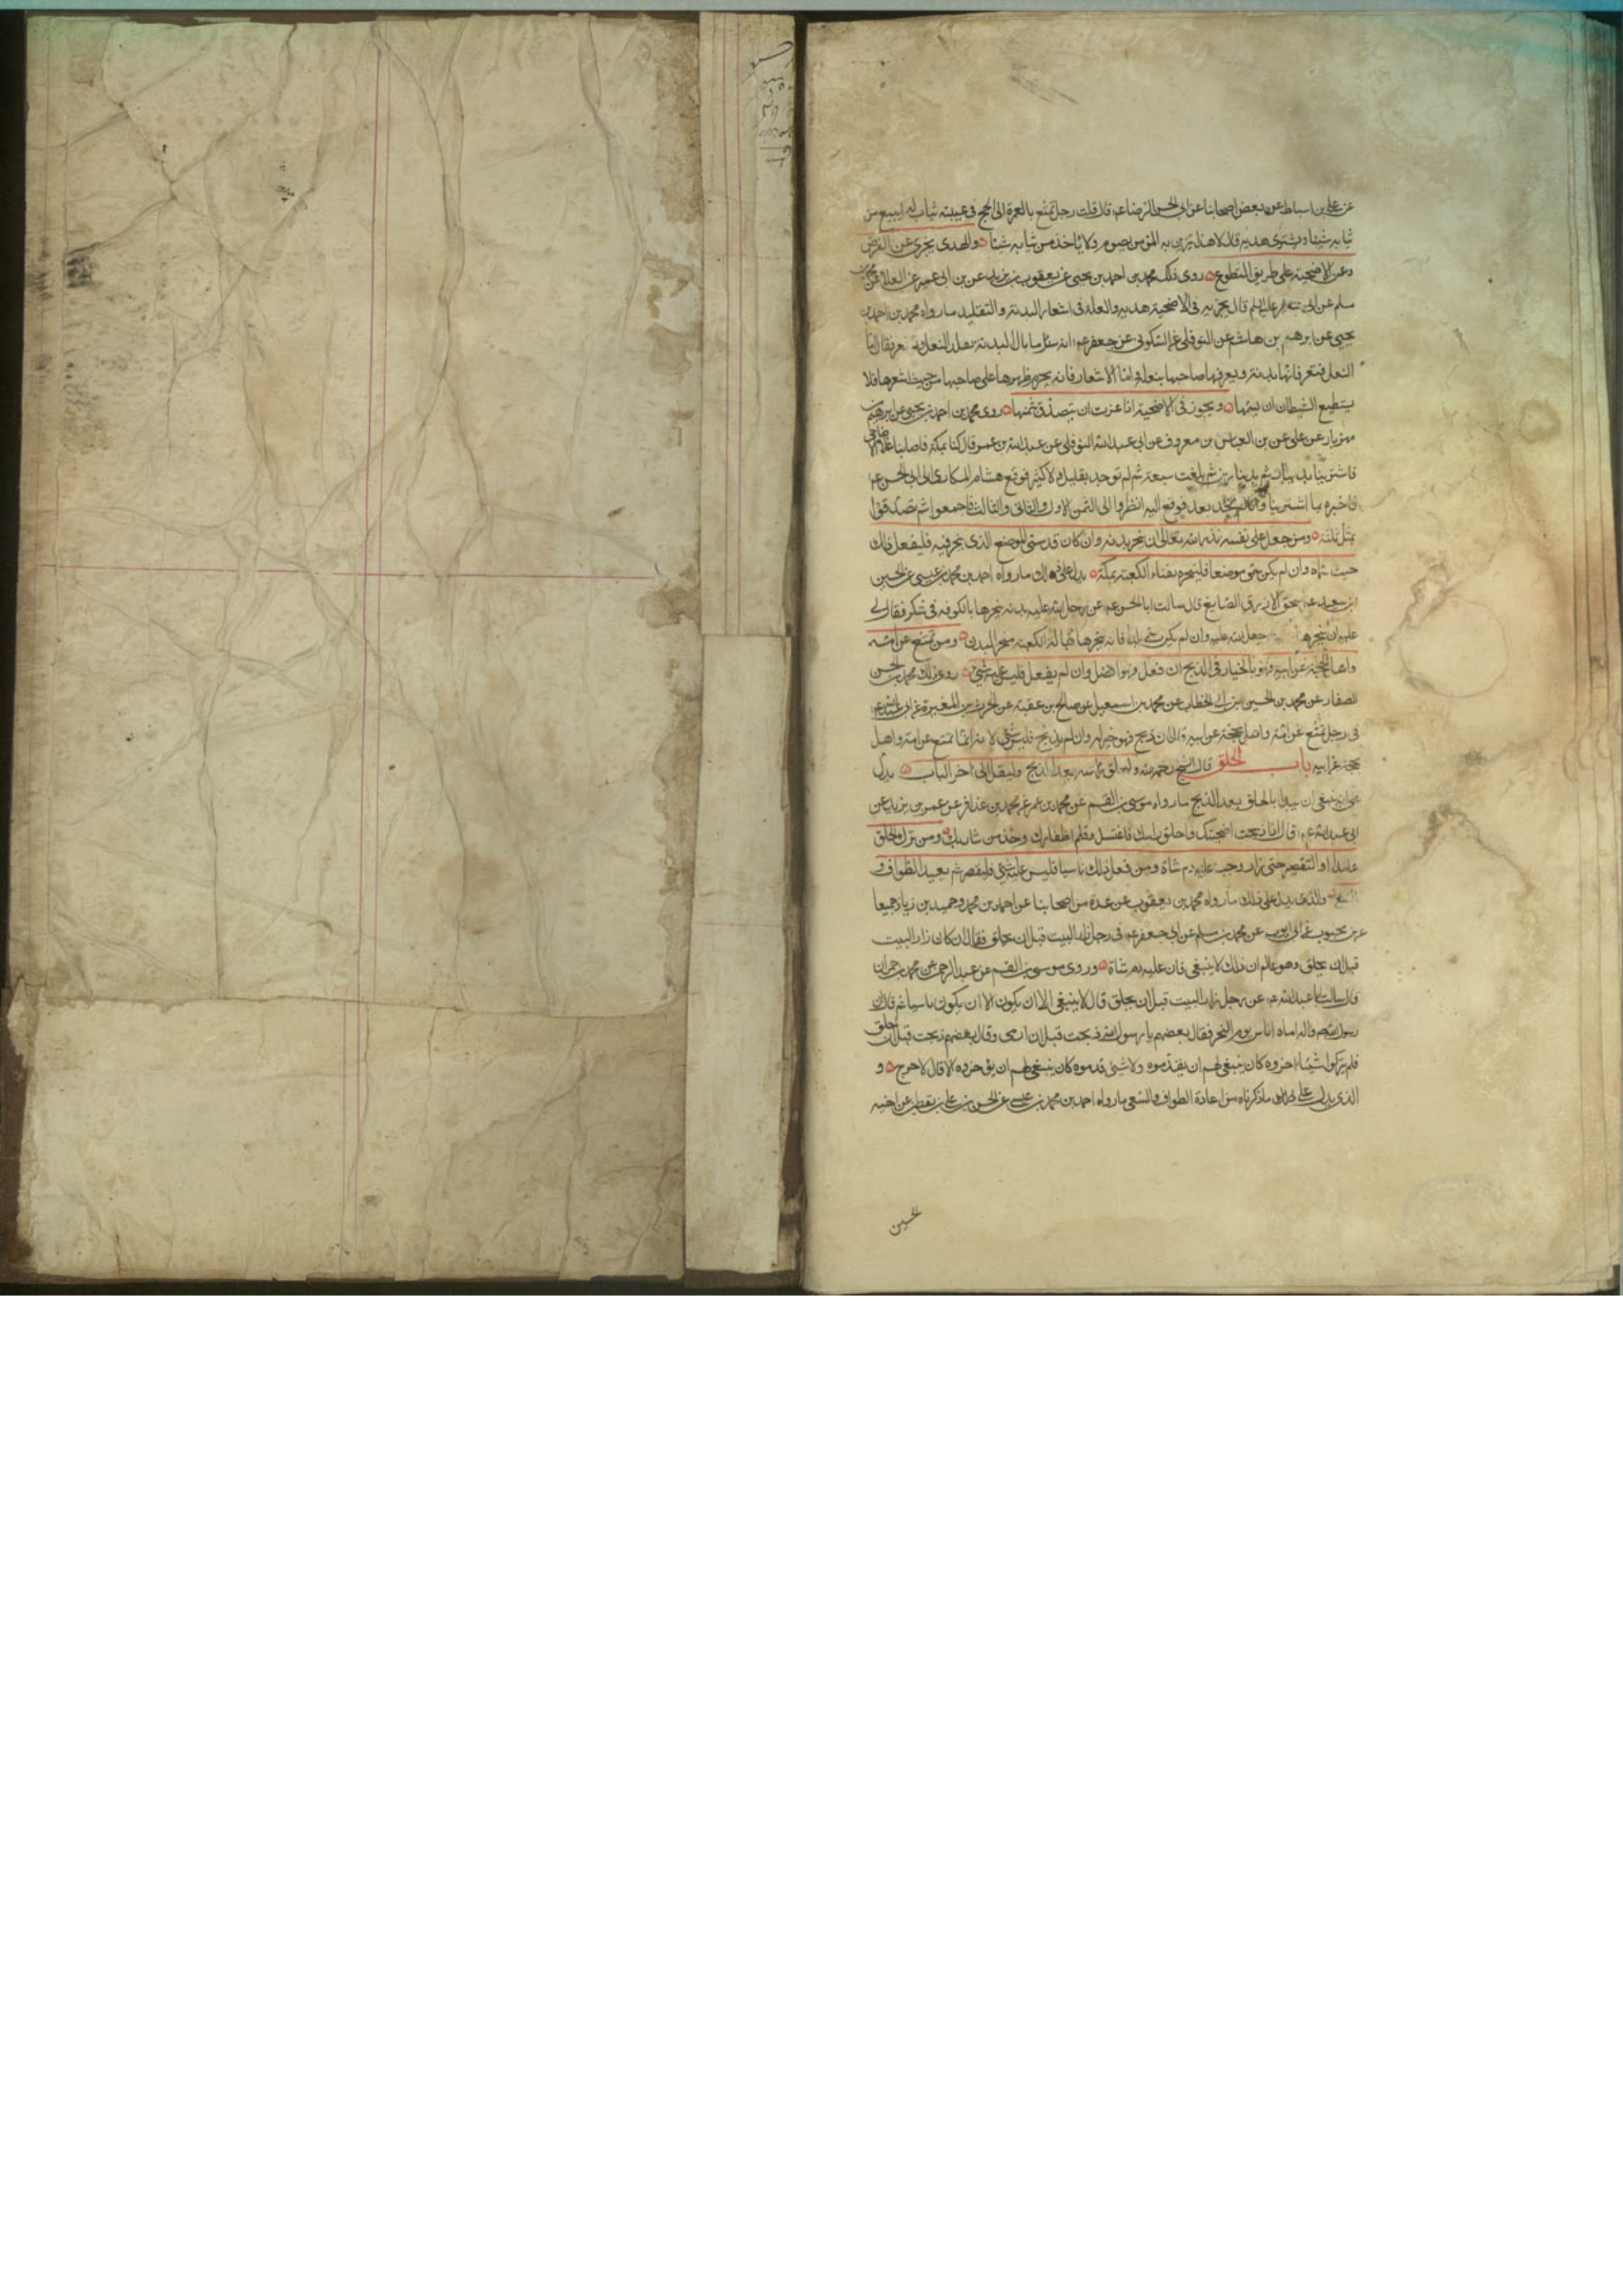 عن علي بن اسباط عن بعض اصحابنا عن ابي الحسن الرضا عم قال قلت رجل تمتع بالعمرة الى الحج في عيبته ثياب له ايبيع من
ثيابه شيئا ويشتري هديه قال لا هذا يتزين به المؤمن يصوم ولا ياخذ من ثيابه شيئا والهدى يجزى عن الفرض
وعن الاضحية على طريق التطوع روى ذلك محمد بن احمد بن يحيى عن يعقوب بن يزيد عن بن ابي عمير عن العلا عن محمد بن
مسلم عن ابي جعفر عليه السلم قال يجزيه في الاضحية هديه والعلة في اشعار البدنة والتقليد ما رواه محمد بن احمد بن
يحيى عن ابرهيم بن هاشم عن النوفلي عن السكوني عن جعفر عم انه سئل ما بال البدنة تقلد النعل وتشعر فقال اما
النعل فتعرف انها بدنة ويعرفها صاحبها بنعله واما الاشعار فانه يحرم ظهرها على صاحبها من حيث اشعرها فلا
يستطيع الشيطان ان يمسها ويجوز في الاضحية اذا عزت ان يتصدق بثمنها روى محمد بن احمد بن يحيى عن ابرهيم بن
مهزيار عن علي عن بن العباس بن معروف عن ابي عبد الله النوفلي عن عبد الله بن عمر قال كنا بمكة فاصابنا غلا الاضاحي
فاشترينا بدينار ثم بدينارين ثم بلغت سبعة ثم لم توجد بقليل ولا كثير فوقع هشام المكارى الى ابي الحسن عم
فاخبره بما اشترينا وانا لم نجد بعد فوقع اليه انظروا الى الثمن الاول والثاني والثالث فاجمعوا ثم تصدقوا
بمثل ثلثه ومن جعل على نفسه نذرا لله تعالى ان ينحر بدنة وان كان قد سمى الموضع الذى ينحر فيه فليفعل ذلك
حيث نواه وان لم يكن سمى موضعا فلينحره بفناء الكعبة بمكة يدل على ذلك ما رواه احمد بن محمد بن عيسى عن الحسين
ابن سعيد عن اسحق الازرق الصايغ قال سالت ابا الحسن عم عن رجل لله عليه بدنة ينحرها بالكوفة في شكر فقال لي
عليه ان ينحرها جعل لله عليه وان لم يكن سمى بلدا فانه ينحرها قبالة الكعبة منحر البدن ومن تمتع عن امه
واهل بحجة عن ابيه فهو بالخيار في الذبح ان فعل فهو افضل وان لم يفعل فليس عليه شئ روى ذلك محمد بن الحسن
الصفار عن محمد بن الحسين بن ابي الخطاب عن محمد بن اسمعيل عن صالح بن عقبة عن الحرث بن المغيرة عن ابي عبد الله عم
في رجل تمتع عن امه واهل بحجة عن ابيه قال ان ذبح فهو خير له وان لم يذبح فليس عليه شئ لانه انما تمتع عن امه واهل
بحجة عن ابيه باب الحلق قال الشيخ رحمه الله وليحلق راسه بعد الذبح وليقل الى اخر الباب يدل
على انه ينبغي ان يبدا بالحلق بعد الذبح ما رواه موسى بن القسم عن محمد بن عمر عن محمد بن عذافر عن عمر بن يزيد عن
ابي عبد الله عم قال اذا ذبحت اضحيتك فاحلق راسك فاغتسل وقلم اظفارك وخذ من شاربك ومن ترك الحلق
عامدا او التقصير حتى زار وجب عليه دم شاة ومن فعل ذلك ناسيا فليس عليه شئ فليقصر ثم يعيد الطواف و
السعي والذى يدل على ذلك ما رواه محمد بن يعقوب عن عدة من اصحابنا عن احمد بن محمد وحميد بن زياد جميعا
عن بن محبوب عن ابي ايوب عن محمد بن مسلم عن ابي جعفر عم في رجل زار البيت قبل ان يحلق فقال ان كان زار البيت
قبل ان يحلق وهو عالم ان ذلك لا ينبغي فان عليه دم شاة وروى موسى بن القسم عن عبد الرحمن عن محمد بن حمران
قال سالت ابا عبد الله عم عن رجل زار البيت قبل ان يحلق قال لا ينبغي الا ان يكون الا ان يكون ناسيا ثم قال ان
رسول الله صم واله اتاه اناس يوم النحر فقال بعضهم يا رسول الله ذبحت قبل ان ارمى وقال بعضهم ذبحت قبل ان احلق
فلم يتركوا شيئا اخروه كان ينبغي لهم ان يقدموه ولا شئ قدموه كان ينبغي لهم ان يؤخروه الا قال لا حرج و
الذى يدل على ما ذكرناه من اعادة الطواف والسعي ما رواه احمد بن محمد بن عيسى عن الحسن بن علي بن يقطين عن اخيه
الحسين